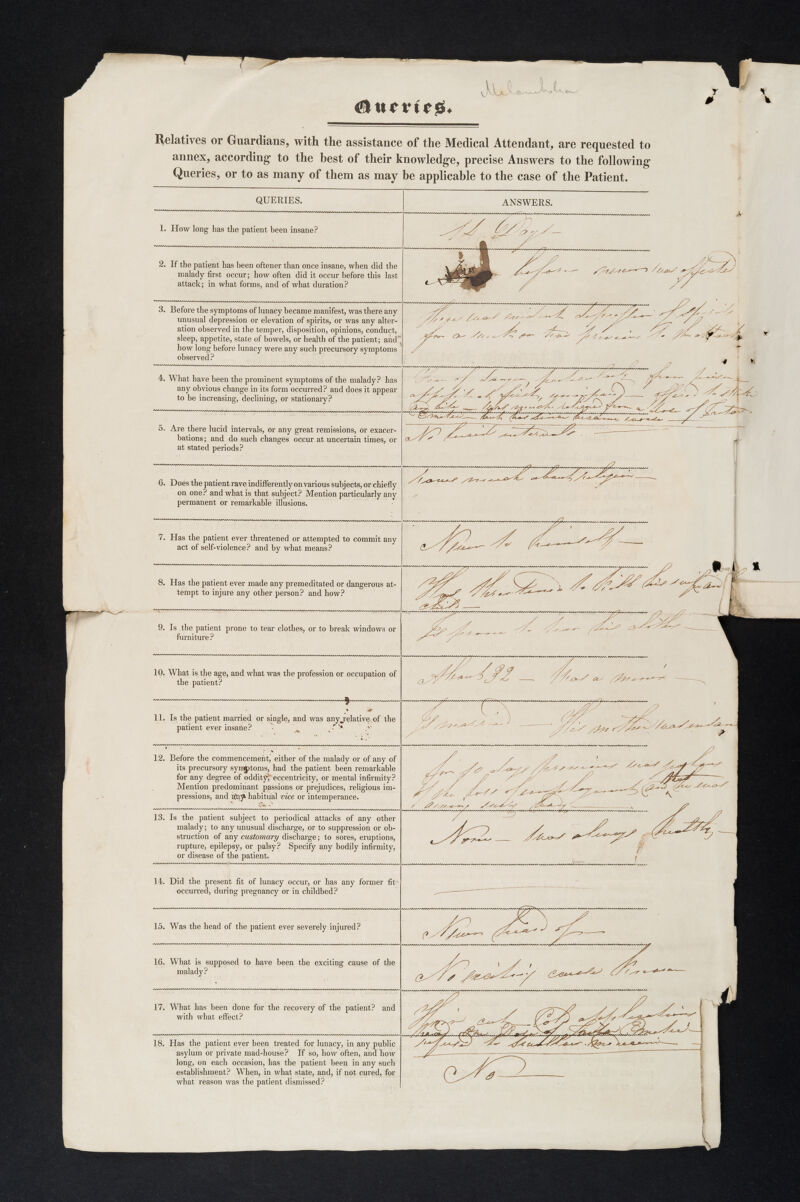 Melancholia
Queries.
Relatives or Guardians, with the assistance of the Medical Attendant, are requested to
annex, according to the best of their knowledge, precise Answers to the following
Queries, or to as many of them as may be applicable to the case of the Patient.
QUERIES.
ANSWERS.
1. How long has the patient been insane?
14 Days
2. If the patient has been oftener than once insane, when did the
malady first occur; how often did it occur before this last
attack; in what forms, and of what duration?
before never was affected
3. Before the symptoms of lunacy became manifest, was there any
unusual depression or elevation of spirits, or was any alter-
ation observed in the temper, disposition, opinions, conduct,
sleep, appetite, state of bowels, or health of the patient; and
how long before lunacy were any such precursory symptoms
observed?
there was evident depression of spirits
for a week or two previous to the attack
4. What have been the prominent symptoms of the malady? has
any obvious change in its form occurred? and does it appear
to be increasing, declining, or stationary?
Fear of danger particularly from poison
appetite at first
much relieved from a dose of Tartar
Emetic
5. Are there lucid intervals, or any great remissions, or exacer-
bations; and do such changes occur at uncertain times, or
at stated periods?
No lucid intervals
6. Does the patient rave indifferently on various subjects, or chiefly
on one? and what is that subject? Mention particularly any
permanent or remarkable illusions.
raves much about religion —
7. Has the patient ever threatened or attempted to commit any
act of self-violence? and by what means?
Never to himself —
8. Has the patient ever made any premeditated or dangerous at-
tempt to injure any other person? and how?
Has threatened to kill his wife and
child —
9. Is the patient prone to tear clothes, or to break windows or
furniture?
Is prone to tear his clothes —
10. What is the age, and what was the profession or occupation of
the patient?
About 32 — Was a miner —
11. Is the patient married or single, and was any relative of the
patient ever insane?
Is married — His mother was insane
12. Before the commencement, either of the malady or of any of
its precursory symptoms, had the patient been remarkable
for any degree of oddity, eccentricity, or mental infirmity?
Mention predominant passions or prejudices, religious im-
pressions, and any habitual vice or intemperance.
for 10 days previous was
the loss of employment and that he was
13. Is the patient subject to periodical attacks of any other
malady; to any unusual discharge, or to suppression or ob-
struction of any customary discharge; to sores, eruptions,
rupture, epilepsy, or palsy? Specify any bodily infirmity,
or disease of the patient.
None — Was always healthy —
14. Did the present fit of lunacy occur, or has any former fit
occurred, during pregnancy or in childbed?
15. Was the head of the patient ever severely injured?
Never heard of —
16. What is supposed to have been the exciting cause of the
malady?
No exciting cause known
17. What has been done for the recovery of the patient? and
with what effect?
Hair cut Cold applications
head One Dose of Tartar Emetic
refused to swallow more
18. Has the patient ever been treated for lunacy, in any public
asylum or private mad-house? If so, how often, and how
long, on each occasion, has the patient been in any such
establishment? When, in what state, and, if not cured, for
what reason was the patient dismissed?
No —